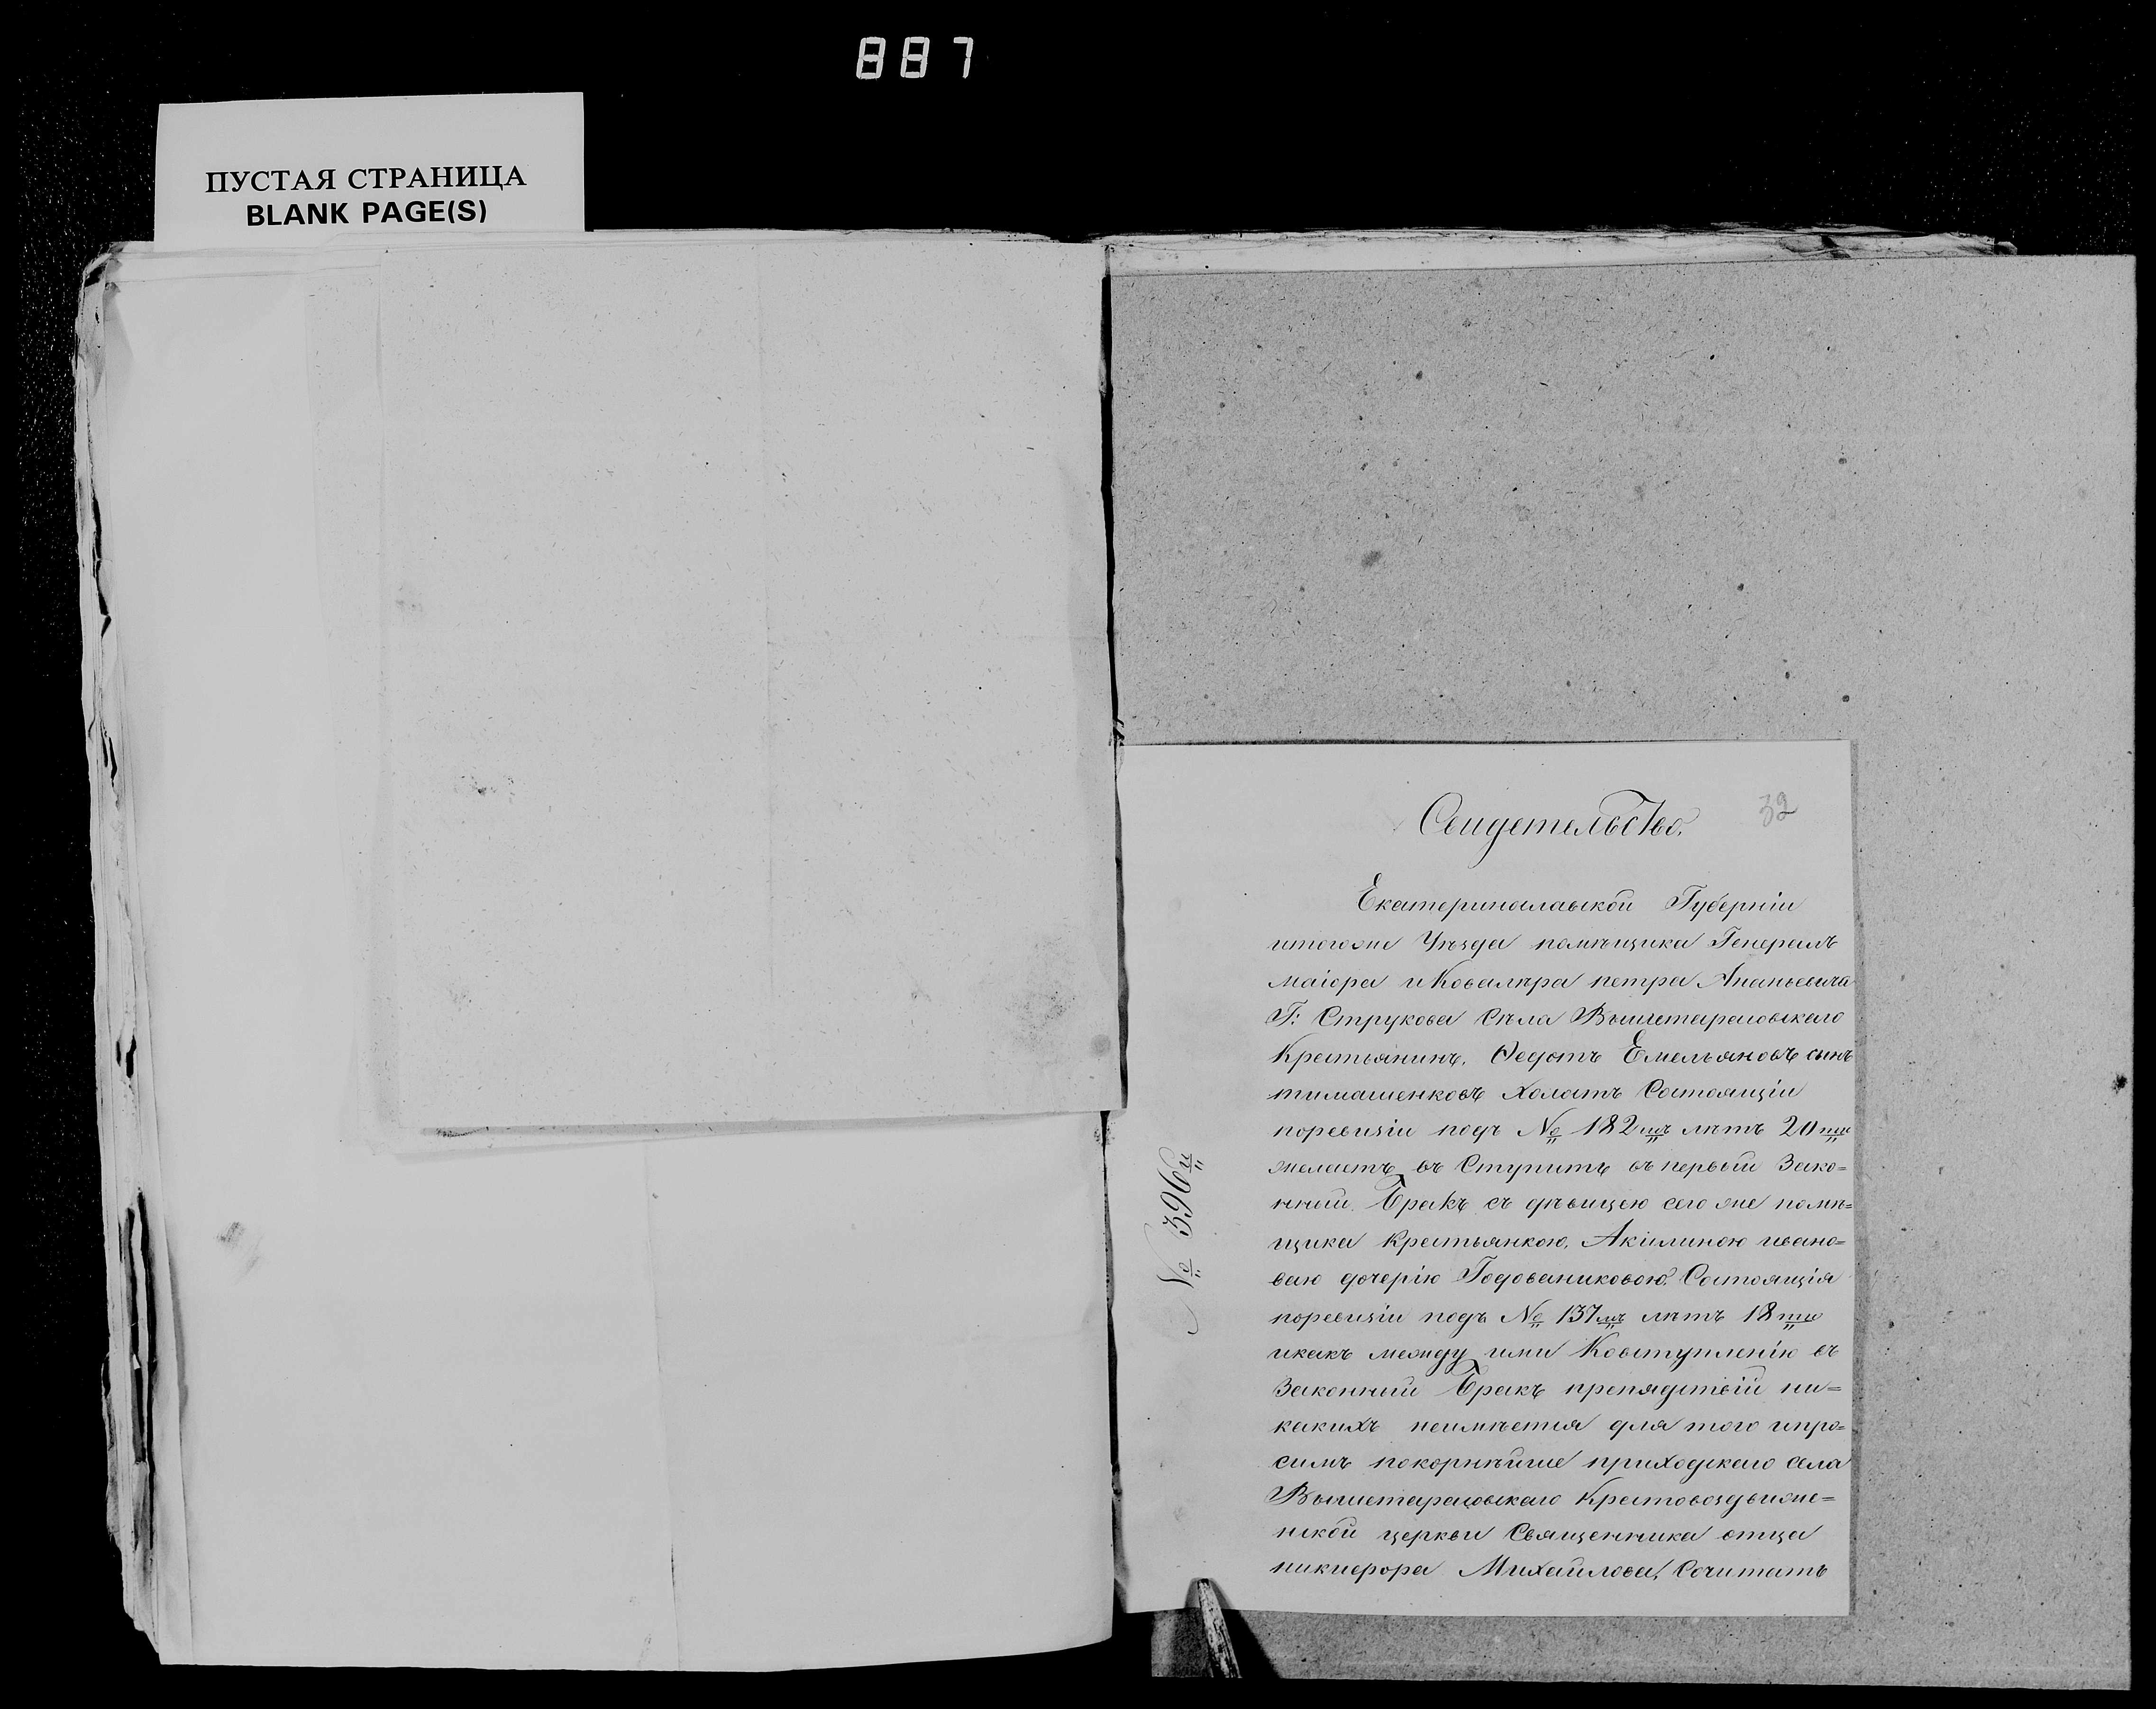 887
ПУСТАЯ СТРАНИЦА
BLANK PAGE(S)
32
Свидетельство.
№ 396й
Екатеринославской Губерніи
итогоже Уѣзда помѣщика Генералъ
маіора и Ковалѣра петра Ананьевича
Г: Струкова Сѣла Вышетарасовскаго
Крестьянинъ. Ѳедотъ Емельяновъ сынъ
тимашенковъ холостъ Состоящіи
поревизіи подъ № 182мъ лѣтъ 20ти
желаетъ въ Ступить въ первый Зако=
нный Бракъ съ дѣвицею сего же помѣ=
щика Крестьянкою, Акилиною ивано=
ваю дочерію Годованиковою. Состоящія
поревизіи подъ № 137мъ лѣтъ 18ти
икакъ между ими Ковступленію въ
Законный Бракъ препядствій ни=
какихъ неимѣется для того ипро=
симъ покорнѣйше приходскаго села
Вышетарасовскаго Крестовоздвиже=
нской церкви Священника отца
никифора Михайлова, Сочитать